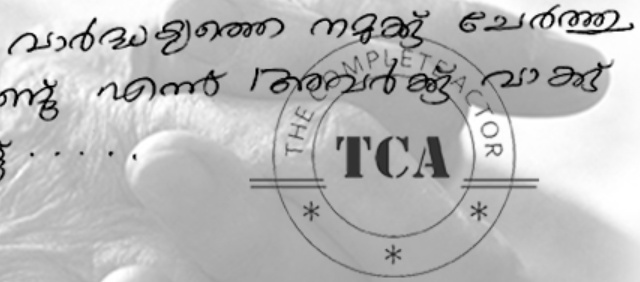 വാർദ്ധക്യത്തെ നമുക്ക് ചേർത്തു
ണ്ട് എന്ന് അവർക്ക് വാക്ക്
.....
THE COMPLETE ACTOR
TCA